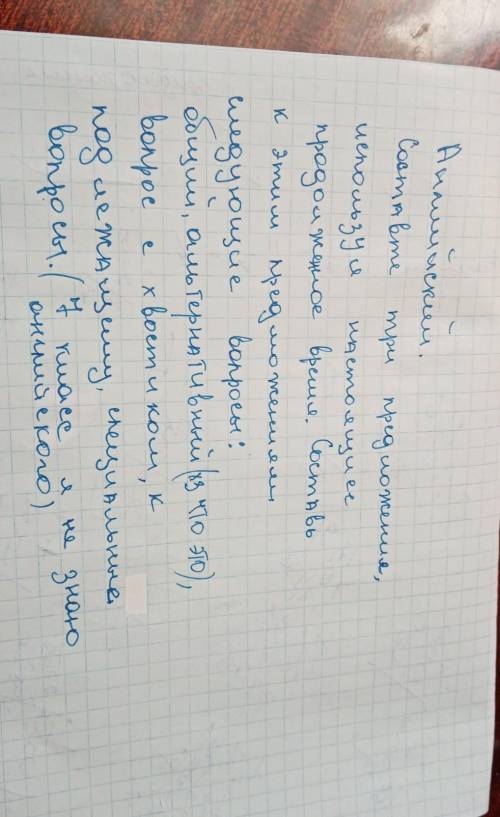 Английский.
Составте три предложения,
используя настоящиее
продолженное время. Составь
к этим предложениям
следующие вопросы:
общий, альтернативний (хз что это),
вопрос с хвостиком, к
подлежащему, специальные
вопросы. (7 класс я не знаю
английского)